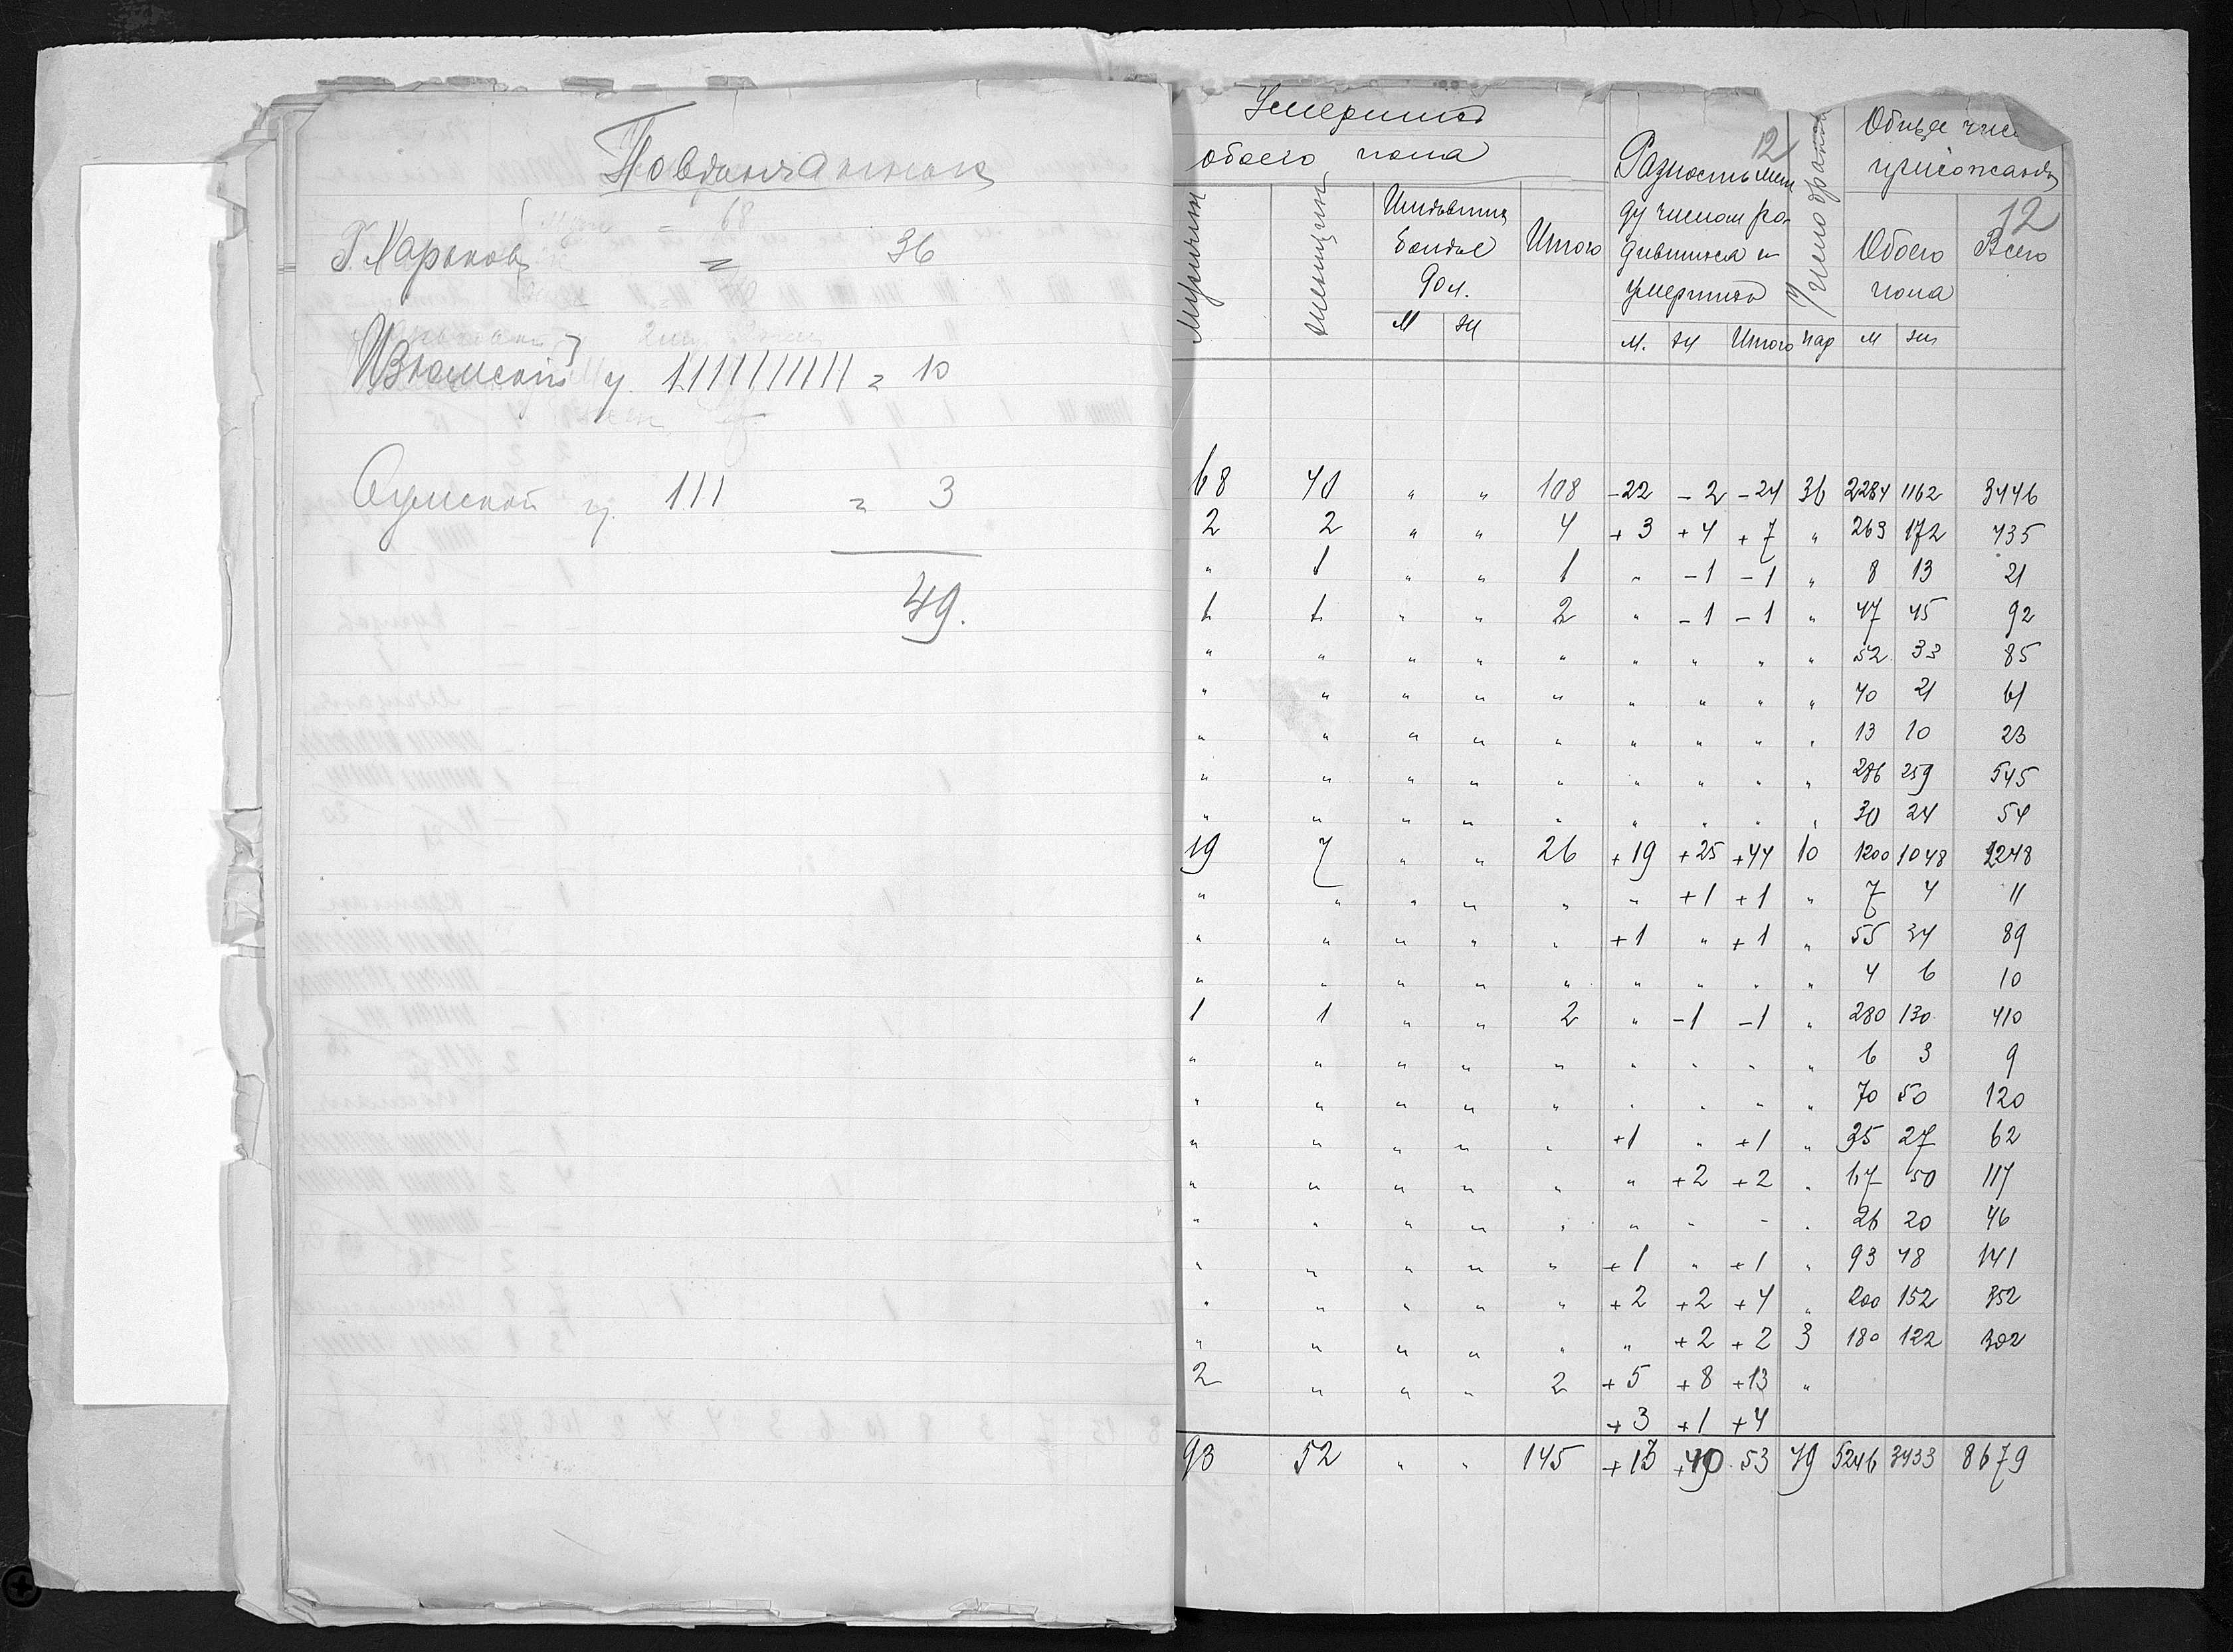 Повѣнчанныхъ
Г. Харьковъ = 36
Изюмской у. 1111111111 = 10
Сумской у. 111 = 3
49.
Умершихъ
обоего пола
Мужчинъ
Женщинъ
Имѣвшихъ
болѣе
90 л.
М Ж
Итого
12
Разность меж
ду числом ро-
дившихся и
умершихъ
М. Ж Итого
Число браковъ
пар
Общее чис
прихожанъ
12
Обоего
пола
М Ж
Всего
68 40 " " 108 -22 -2 -24 36 2284 1162 3446
2 2 " " 4 +3 +4 +7 " 263 172 435
" 1 " " 1 " -1 -1 " 8 13 21
1 1 " " 2 " -1 -1 " 47 45 92
" " " " " " " " " 52 33 85
" " " " " " " " " 40 21 61
" " " " " " " " " 13 10 23
" " " " " " " " " 286 259 545
" " " " " " " " " 30 24 54
19 7 " " 26 +19 +25 +44 10 1200 1048 2248
" " " " " " +1 +1 " 7 4 11
" " " " " +1 " +1 " 55 34 89
" " " " " " " " " 4 6 10
1 1 " " 2 " -1 -1 " 280 130 410
" " " " " " " " " 6 3 9
" " " " " " " " " 70 50 120
" " " " " +1 " +1 " 35 27 62
" " " " " " +2 +2 " 67 50 117
" " " " " " " " " 26 20 46
" " " " " +1 " +1 " 93 48 141
" " " " " +2 +2 +4 " 200 152 352
" " " " " " +2 +2 3 180 122 302
2 " " " 2 +5 +8 +13 "
+3 +1 +4
93 52 " " 145 +13 +40 53 49 5246 3433 8679